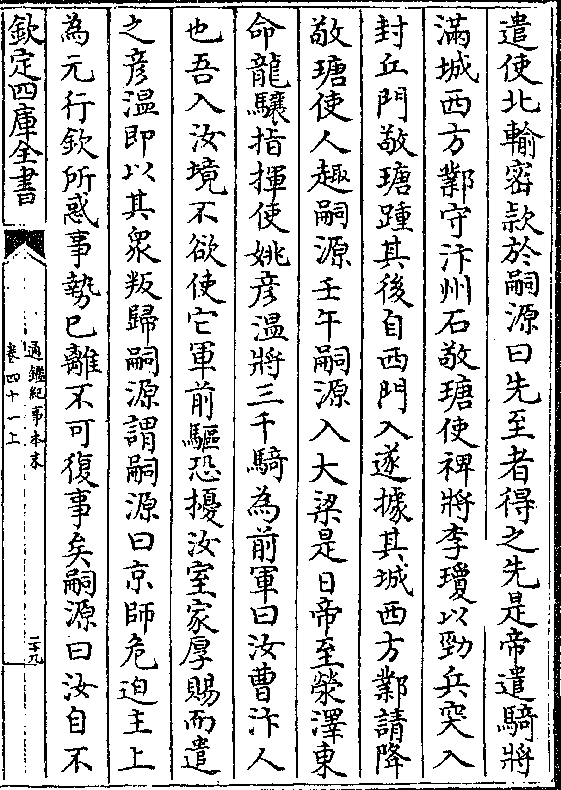 遣使北輸密款於嗣源曰先至者得之先是帝遣騎將
滿城西方鄴守汴州石敬瑭使裨將李瓊以勁兵突入
封丘門敬瑭踵其後自西門入遂據其城西方鄴請降
敬瑭使人趣嗣源壬午嗣源入大梁是日帝至滎澤東
命龍驤指揮使姚彦溫將三千騎為前軍曰汝曹汴人
也吾入汝境不欲使它軍前驅恐擾汝室家厚賜而遣
之彦溫即以其衆叛歸嗣源謂嗣源曰京師危迫主上
為元行欽所惑事勢已離不可復事矣嗣源曰汝自不
欽定四庫全書
通鑑紀事本末
卷四十一上
二十九